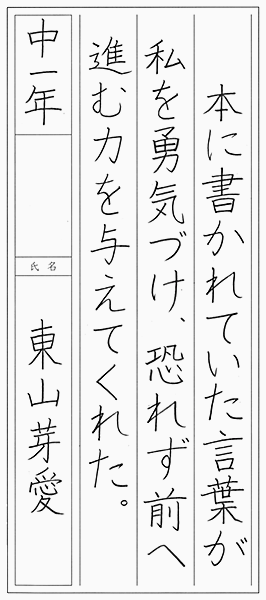 本に書かれていた言葉が
私を勇気づけ、恐れず前へ
進む力を与えてくれた。
中一年
氏名
東山芽愛